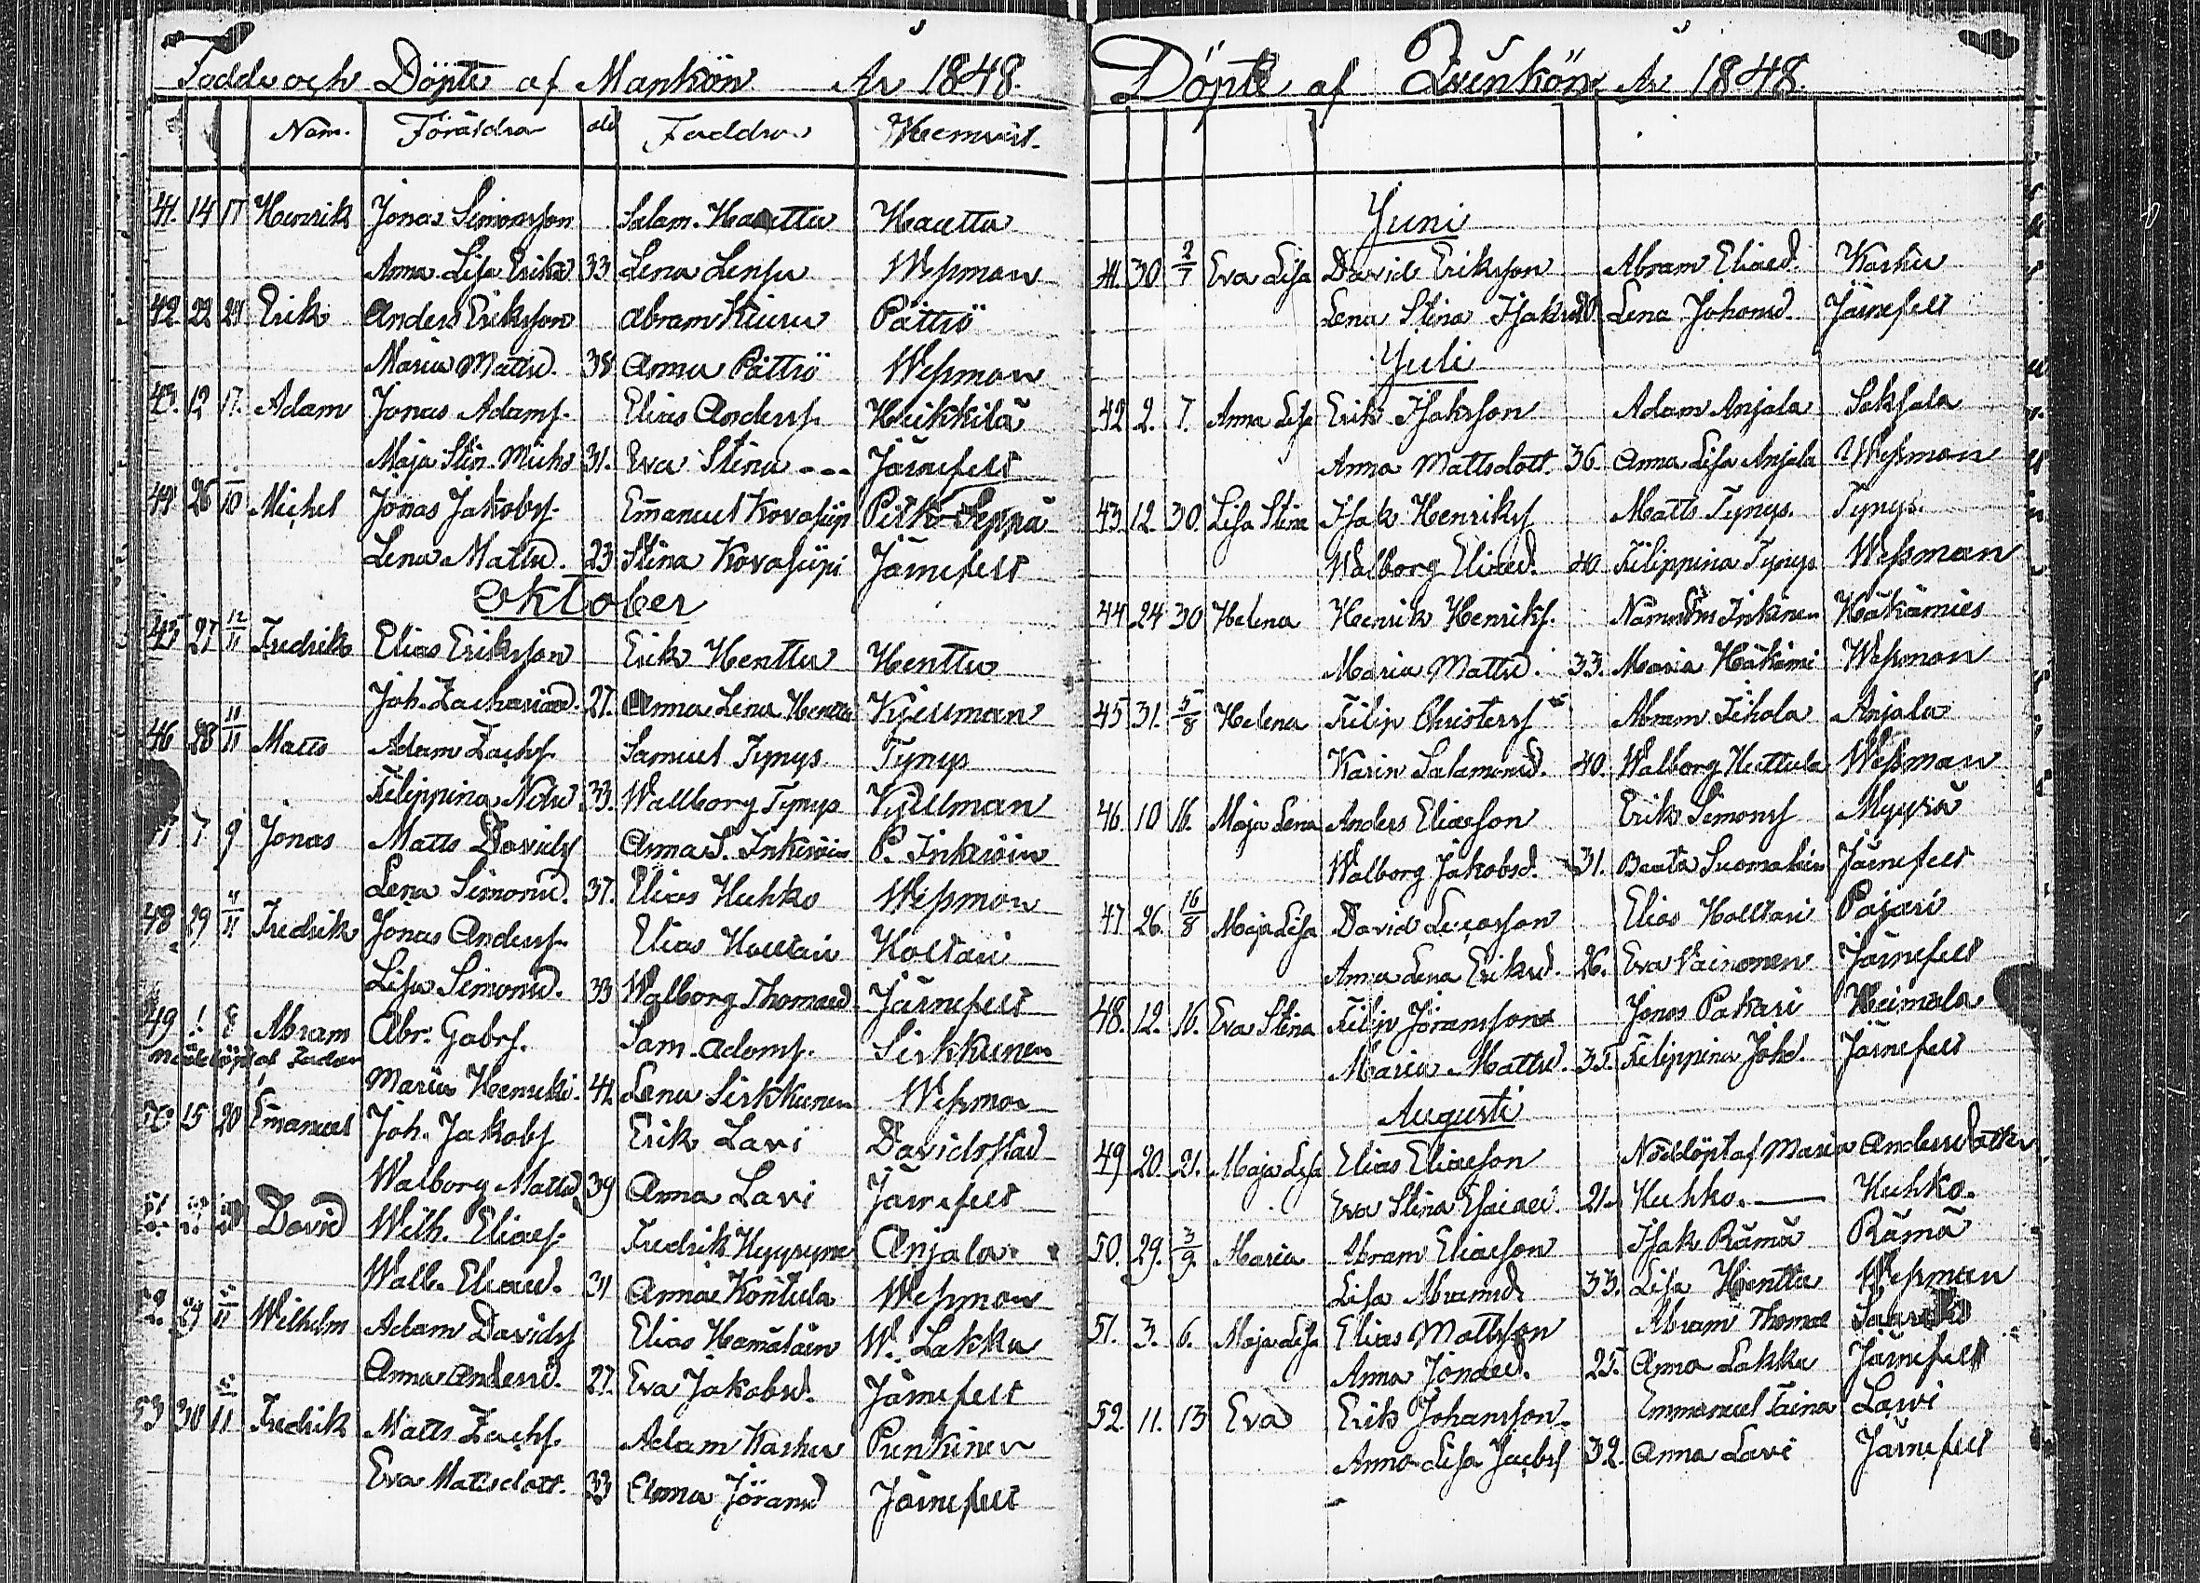 Födde och Döpte af Mankön År 1848.
Nam. Föräldra ald Faddra Hemvist.
41. 14 17 Henrik Jonas Simonsson Salam. Hauttu Hauttu
Anna Lisa Eriks 33 Lena Lensu Wessman
42. 22 24 Erik Anders Eriksson Abram Kiuru Pättiö
Maria Mattsd. 38 Anna Pättiö Wessman
43. 12 17. Adam Jonas Adamss. Elias Anderss. Heikkilä
Maja Stin. Michs 31. Eva Stina --- Järnefelt
44 26 1/10 Michel Jonas Jakobss. Emanuel Kovasiipi Pitk-Seppä
Lena Mattsd. 23 Stina Kovasiipi Järnefelt
Oktober
45 27 12/11 Fredrik Elias Eriksson Erik Henttu Henttu
Joh. Zachariasd. 27. Anna Lena Henttu Kjellman
46 28 11/11 Matts Adam Zachss. Samuel Tynys Tynys
Filippina 33. Wallborg Tynys Kjellman
7 9 Jonas Matts Davidss Anna S. Inkeröin P. Inkeröin
Lena Simonsd. 37. Elias Huhko Wessman
48 29 4/11 Fredrik Jonas Anderss. Elias Holttari Holttari
Lisa Simonsd. 33 Walborg Thomasd. Järnefelt
49 1 8 Abram Abr. Gabrs. Sam. Adamss. Sirkkunen
Nöddöpt af Fadern
Maria Henriks. 41. Lena Sirkkunen Wessman
50 15 20 Emanuel Joh. Jakobss Erik Lavi Davidsstad
Walborg Mattsd 39 Anna Lavi Järnefelt
51 David Wilh. Eliass. Fredrik Hyyryne Anjala
Walb. Eliasd. 31 Anna Konttula Wessman
52. 29 Wilhelm Adam Davidss Elias Hämäläin W. Lakka
Anna Andersd. 27. Eva Jakobsd. Järnefelt
53 30 11 Fredrik Matts Zachss. Adam Karhu Punkinen
Eva Mattsdott. 33 Anna Jöransd Järnefelt
Döpte af Qvinkön År 1848.
Juni
41. 30 2/7 Eva Lisa David Eriksson Abram Eliasd. Karhu
Lena Stina Isaksd Lena Johansd. Järnefelt
Juli
42 2. 7. Anna Lisa Erik Isaksson Adam Anjala Seksala
Anna Mattsdott. 36 Anna Lisa Anjala Wessman
43. 12. 30. Lisa Stina Isak Henrikss Matts Tynys. Tynys.
Walborg Eliasd. 40 Filippina Tynys Wessman
44 24 30 Helena Henrik Henrikss. Inkinen Häkämies
Maria Mattsd. 33. Maria Häkämi Wessman
45 31. 5/8 Helena Filip Christerss Abram Tihola Anjala
Karin Salamonsd. 40. Walborg Huttula Wessman
46. 10 16. Maja Lena Anders Eliasson Erik Simonss Myyrä
Walborg Jakobsd. 31. Beata Suomalain Järnefelt
47 26. 16/8 Maja Lisa David Lucasson Elias Holttari Pajari
Anna Lena Eriksd. 26. Eva Vainonen Järnefelt
48. 12. 16. Eva Stina Filip Jöransson Jonas Pakari Heimala
Maria Mattsd. 35. Filippina Johd. Järnefelt
Augusti
49 20. 21. Maja Lisa Elias Eliasson Nöddöpt af Maria Andersdotter
Eva Stina Esaiasd. 21. Huhko. — Huhko.
50. 29. 3/9 Maria Abram Eliasson Isak Rämä Rämä
Lisa Abramsd. 33. Lisa Henttu Wessman
51. 3. 6. Maja Lisa Elias Mattsson Abram Thomae
Anna Jonasd. 25. Anna Lakka Järnefelt
52. 11. 13 Eva Erik Johansson. Emmanuel Taina Lavi
Anna Lisa Jacobs 32. Anna Lavi Järnefelt